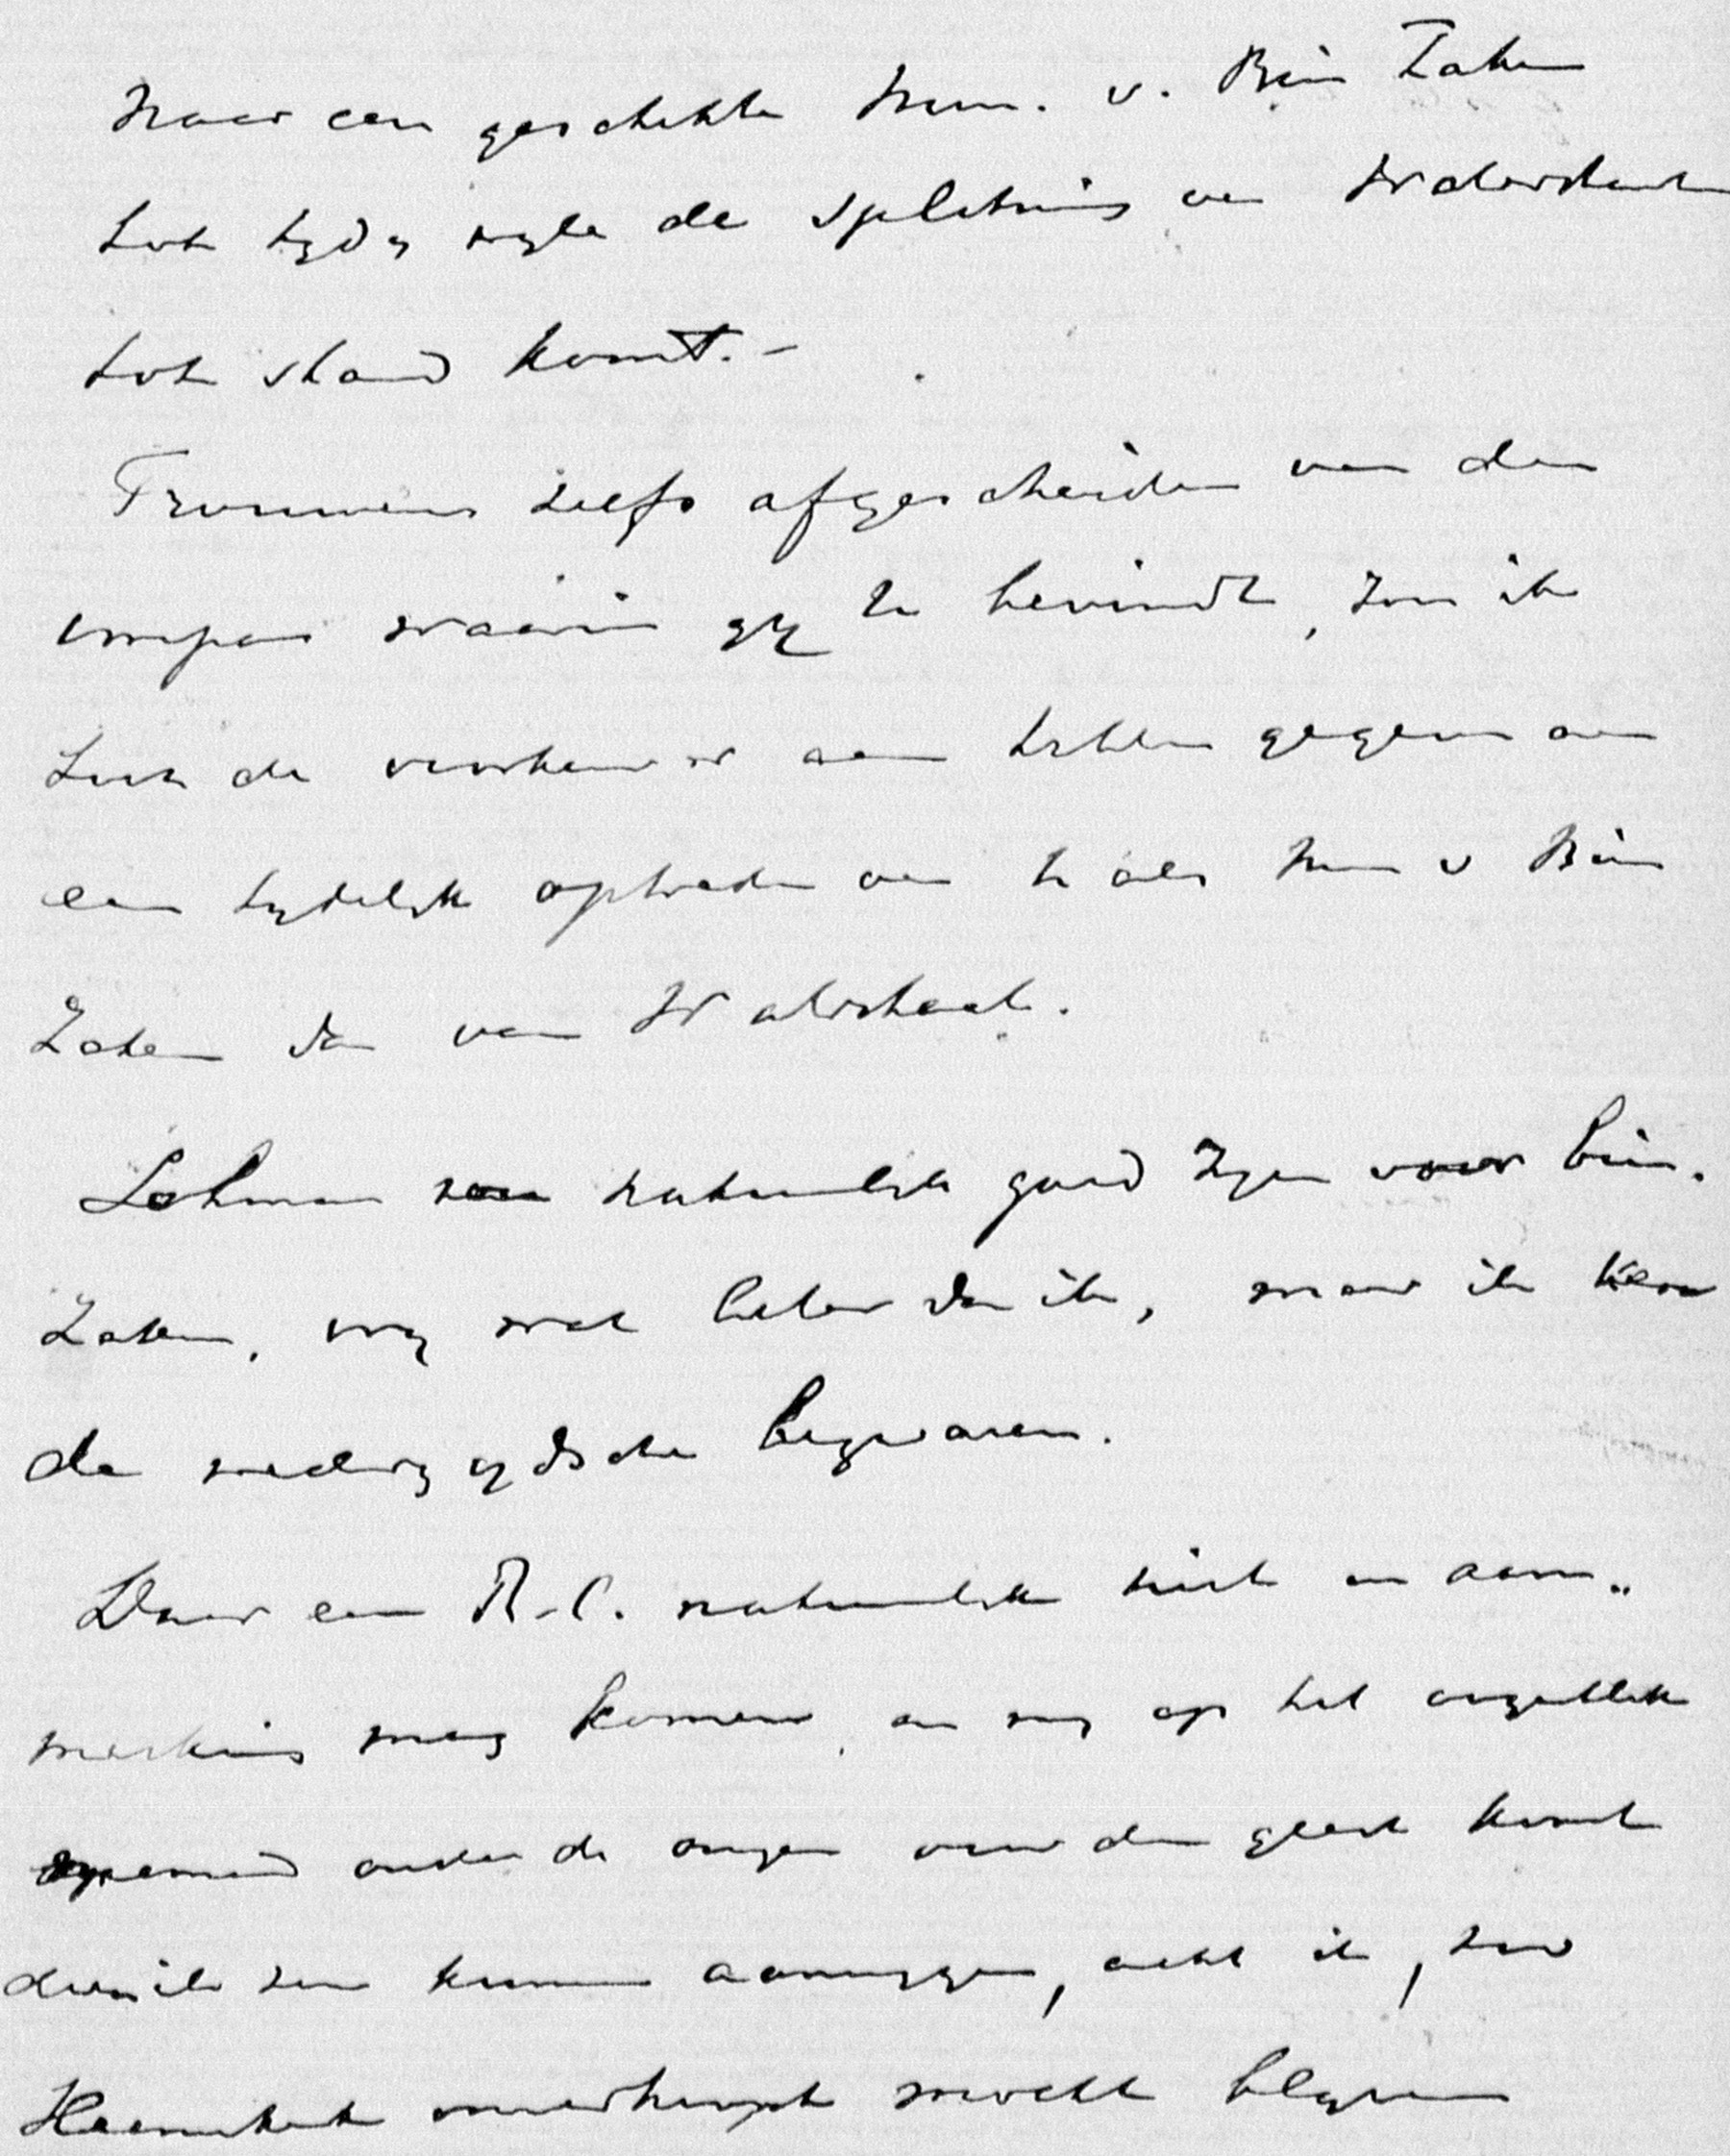 naar een geschikte Min. v. Bin Zaken
tot tijd en wijle de splitsing van Waterstaat
tot stand komt. -
Trouwens zelfs afgescheiden van den
waarin gij U bevindt, zou ik
de voorkeur aan hebben gegeven aan
een tijdelijk optreden van U als Min v Bin
Zaken dan van Waterstaat.
Lohman zou natuurlijk goed zijn voor bin.
Zaken, vrij wat beter dan ik, maar ik ken
de wederzijdsche bezwaren.
Daar een R.C. natuurlijk niet in aan„
merking mag komen, en mij op het oogenblik
niemand onder de oogen voor den geest komt
dien ik zou kunnen aanwijzen, acht ik, zoo
Heemskerk onverhoopt mocht blijven